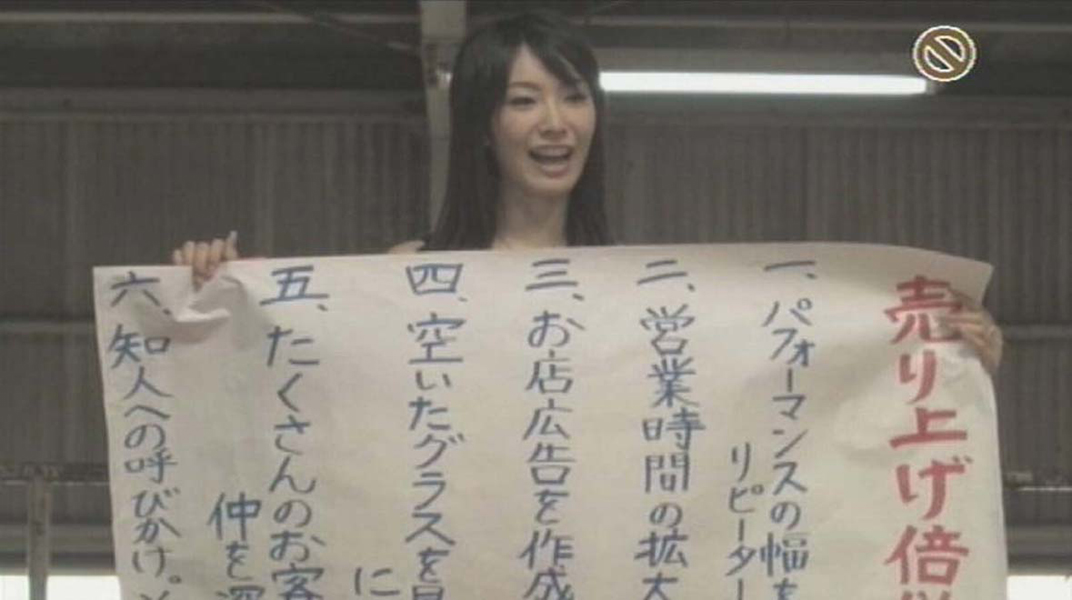 売り上げ倍
一、パフォーマンスの幅を
リピーター
二、営業時間の拡大
三、お店広告を作成
四、空いたグラスを見
に
五、たくさんのお客
仲を深
六、知人への呼びかけ。